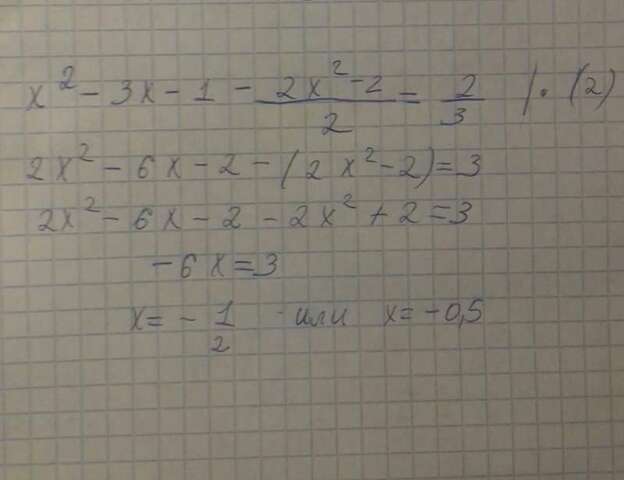 x² - 3x - 1 - (2x² - 2)/2 = 2/3 | · (2)
2x² - 6x - 2 - (2x² - 2) = 3
2x² - 6x - 2 - 2x² + 2 = 3
-6x = 3
x = - 1/2 или x = -0,5